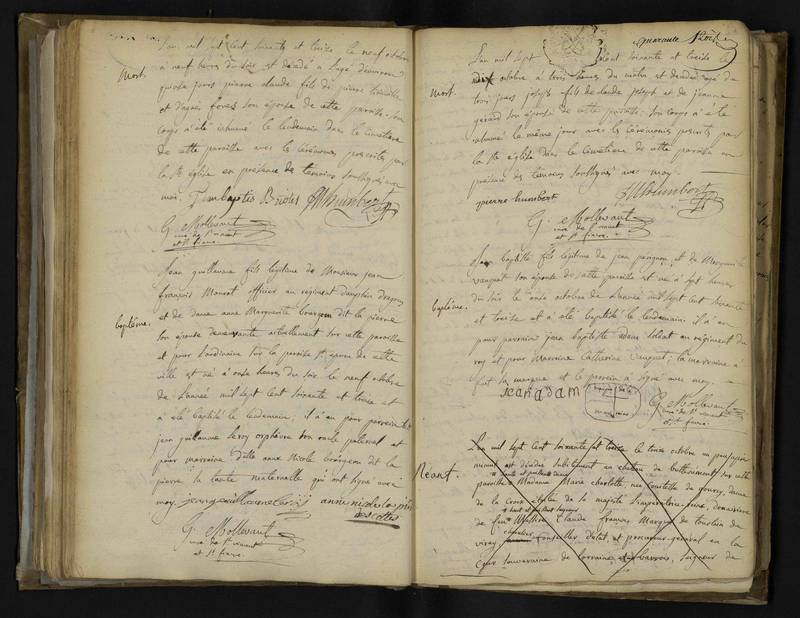 L'an mil sept cent soixante et treize le neuf octobre
mort.
à neuf heures du soir est décédé à l'age d'environ
quinze jours pierre claude fils de pierre
et d'agnes son épouse de cette paroisse. son
corps a été inhumé le lendemain dans le cimetière
de cette paroisse avec les cérémonies prescrites par
la Ste église en présence des temoins soussignés avec
moi. J humbert
G. Mollevaut
curé de St vincent
et St fiacre
Jean guillaume fils légitime de Monsieur jean
françois officier au regiment dauphin dragons
et de dame anne Marguerite bourgeon dit la pierre
baptême.
son épouse demeurante actuellement sur cette paroisse
et pour l'ordinaire sur la paroisse St de cette
ville est né à onze heures du soir le neuf octobre
de l'année mil sept cent soixante et treize et
a été baptisé le lendemain. il a eu pour parrein
jean guillaume leroy orphèvre son oncle paternel et
pour marraine dlle anne Nicole bourgeon dit la
pierre sa tante maternelle qui ont signé avec
moy. jean guillaume anne nicole
G. Mollevaut
curé de St vincent
et St fiacre
quarante
L'an mil sept cent soixante et treize le
dix octobre à trois heures du matin est décédé agé de
mort.
trois jours joseph fils de claude joseph et de jeanne
gerard son épouse de cette paroisse. son corps a été
inhumé le même jour avec les cérémonies prescrites par
la Ste église dans le cimetière de cette paroisse en
présence des temoins soussignés avec moy.
pierre humbert J humbert
G. Mollevaut
curé de St vincent
et St fiacre.
Jean baptiste fils légitime de jean et de Marguerite
vauguet son épouse de cette paroisse est né à sept heures
baptême.
du soir le onze octobre de l'année mil sept cent soixante
et treize et a été baptisé le lendemain. il a eu
pour parrein jean baptiste adam soldat au régiment du
roy et pour Marraine Catherine vauguet. la marraine a
fait sa marque et le parrein a signé avec moy.
jean adam
G. Mollevaut
curé de St vincent
et St fiacre
L'an mil sept cent soixante et treize le treize octobre
Néant.
est décédée subitement au chateau de sur cette
paroisse Madame Marie charlotte, née Comtesse de gourcy, dame
de la Croix étoilée de sa majesté l'imperatrice reine, douairière
de feu Messire Claude françois Marquis de toustain de
viray conseiller d'état, et procureur général en la
Cour souveraine de lorraine et barrois, seigneur de